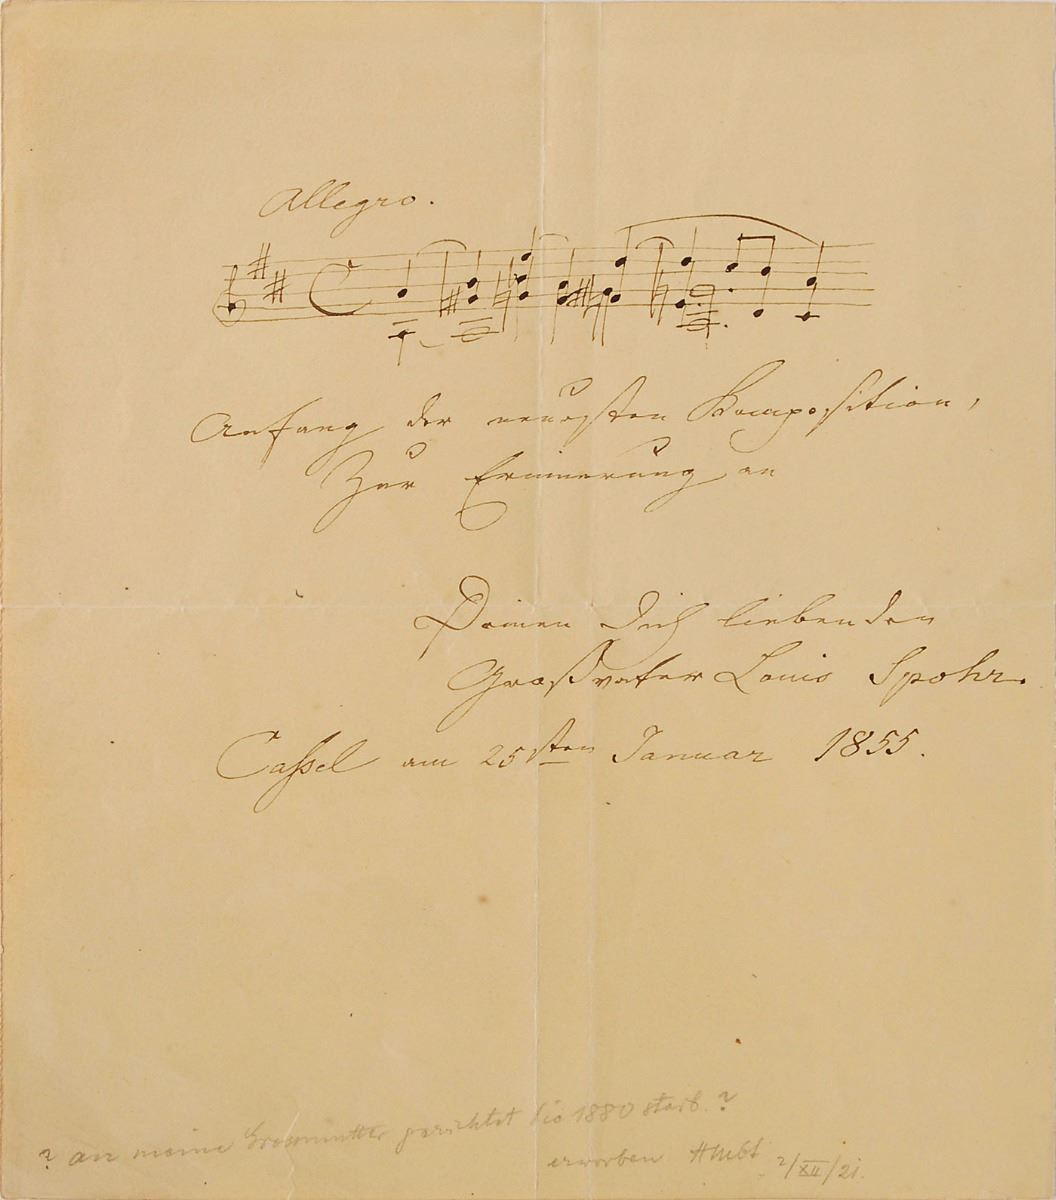 Allegro.
Anfang der neuesten Komposition,
Zur Erinnerung an
Deinen Dich liebenden
Großvater Louis Spohr.
Cassel am 25sten Januar 1855.
? an meine Grossmutter gerichtet die 1880 starb. ?
erworben 2/XII/21.